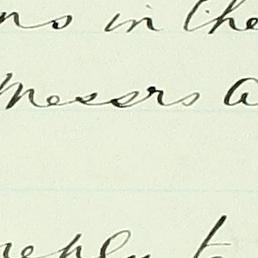 ns in the
Messrs a
reply to